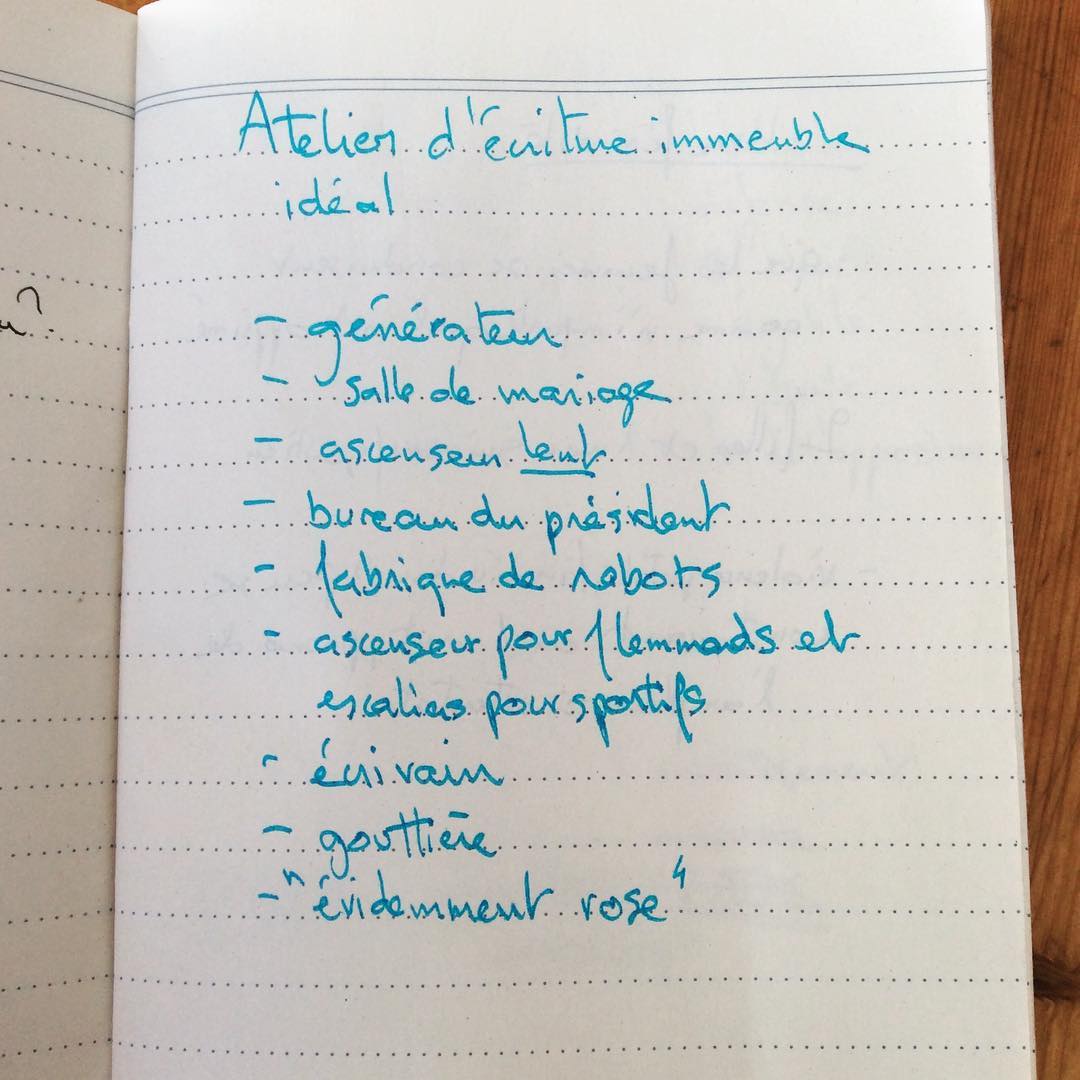 Atelier d'écriture immeuble
idéal
- générateur
- salle de mariage
- ascenseur lent
- bureau du président
- fabrique de robots
- ascenseur pour flemmards et
escaliers pour sportifs
- écrivain
- gouttière
- "évidemment rose"